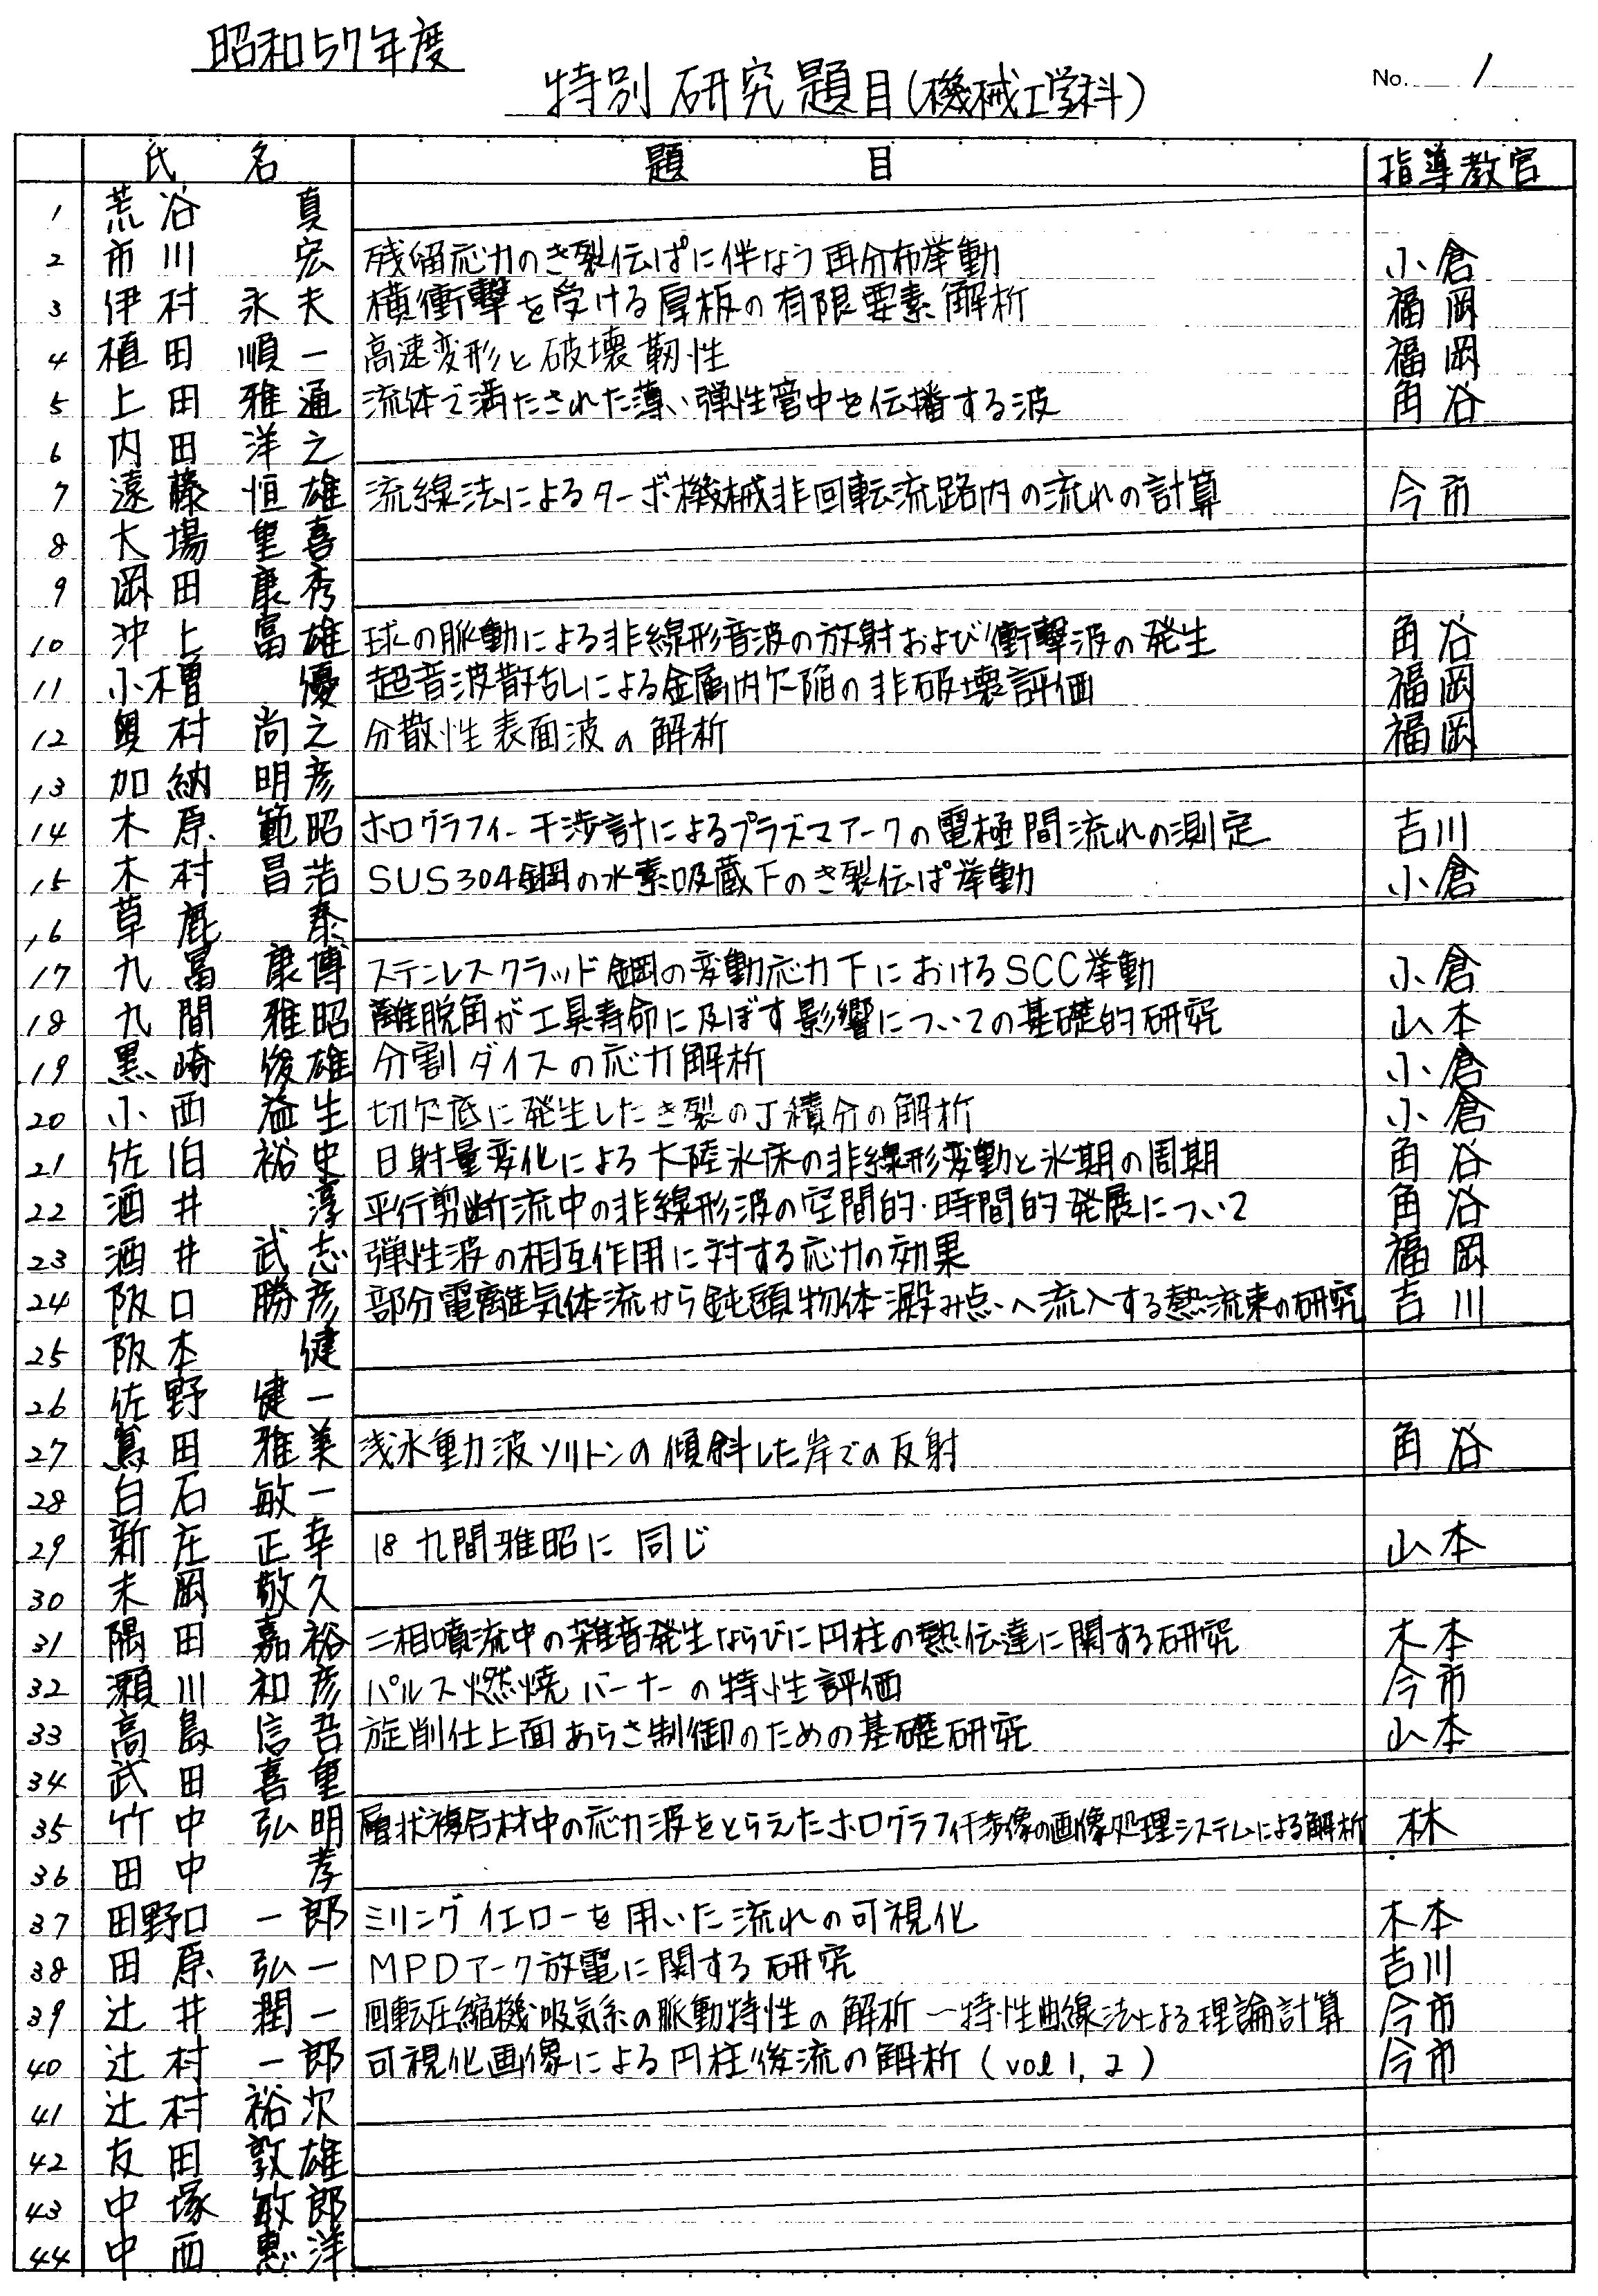 昭和57年度
特別研究題目(機械工学科)
No. 1
氏名 題目 指導教官
1 荒谷 真
2 市川 宏 残留応力のき裂伝ぱに伴なう再分布挙動 小倉
3 伊村 永夫 横衝撃を受ける厚板の有限要素解析 福岡
4 植田 順一 高速変形と破壊靭性 福岡
5 上田 雅通 流体で満たされた薄い弾性管中を伝播する波 角谷
6 内田 洋之
7 遠藤 恒雄 流線法によるターボ機械非回転流路内の流れの計算 今市
8 大場 里喜
9 岡田 康秀
10 沖上 富雄 球の脈動による非線形音波の放射および衝撃波の発生 角谷
11 小槽 優 超音波散乱による金属内欠陥の非破壊評価 福岡
12 奥村 尚之 分散性表面波の解析 福岡
13 加納 明彦
14 木原 範昭 ホログラフィー干渉計によるプラズマアークの電極間流れの測定 吉川
15 木村 昌浩 SUS304鋼の水素吸蔵下のき裂伝ぱ挙動 小倉
16 草鹿 泰
17 九冨 康博 ステンレスクラッド鋼の変動応力下におけるSCC挙動 小倉
18 九間 雅昭 離脱角が工具寿命に及ぼす影響についての基礎的研究 山本
19 黒崎 俊雄 分割ダイスの応力解析 小倉
20 小西 益生 切欠底に発生したき裂のJ積分の解析 小倉
21 佐伯 裕史 日射量変化による大陸氷床の非線形変動と氷期の周期 角谷
22 酒井 淳 平行剪断流中の非線形波の空間的・時間的発展について 角谷
23 酒井 武志 弾性波の相互作用に対する応力の効果 福岡
24 阪口 勝彦 部分電離気体流から鈍頭物体澱み点へ流入する熱流束の研究 吉川
25 阪本 健
26 佐野 健一
27 蔦田 雅美 浅水重力波ソリトンの傾斜した岸での反射 角谷
28 白石 敏一
29 新庄 正幸 18 九間雅昭に同じ 山本
30 末岡 敬久
31 隅田 嘉裕 二相噴流中の雑音発生ならびに円柱の熱伝達に関する研究 木本
32 瀬川 和彦 パルス燃焼バーナーの特性評価 今市
33 高島 信吾 旋削仕上面あらさ制御のための基礎研究 山本
34 武田 喜重
35 竹中 弘明 層状複合材中の応力波をとらえたホログラフィ干渉像の画像処理システムによる解析 林
36 田中 孝
37 田野口 一郎 ミリングイエローを用いた流れの可視化 木本
38 田原 弘一 MPDアーク放電に関する研究 吉川
39 辻井 潤一 回転圧縮機吸気系の脈動特性の解析ー特性曲線法による理論計算 今市
40 辻村 一郎 可視化画像による円柱後流の解析(vol 1, 2) 今市
41 辻村 裕次
42 友田 敦雄
43 中塚 敏郎
44 中西 惠洋